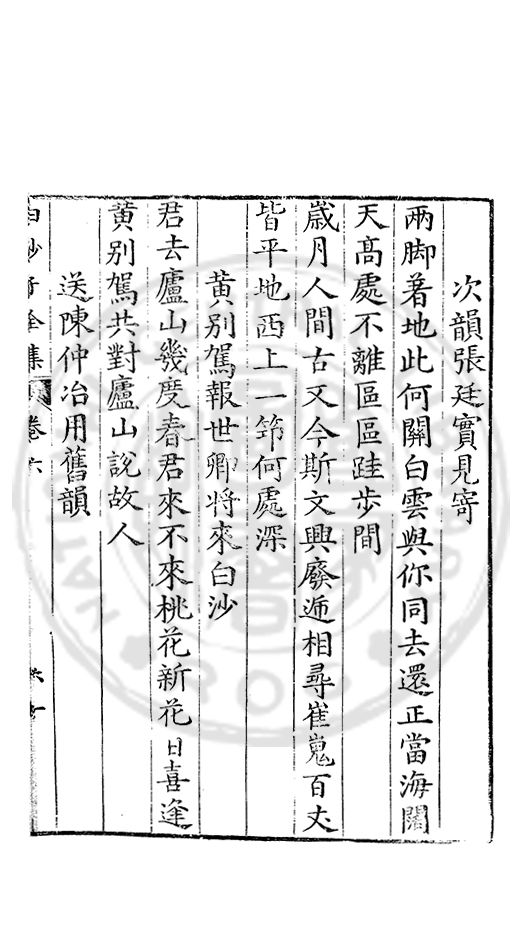 次韻張廷實見寄
兩脚著地此何關白雲與你同去還正當海闊
天髙處不離區區跬步間
嵗月人間古又今斯文興廢逓相尋崔嵬百丈
皆平地西上一筇何處深
黄别駕報世卿将來白沙
君去廬山幾度春君來不來桃花新花日喜逢
黄别駕共對廬山說故人
送陳仲冶用舊韻
白沙子全集 卷六